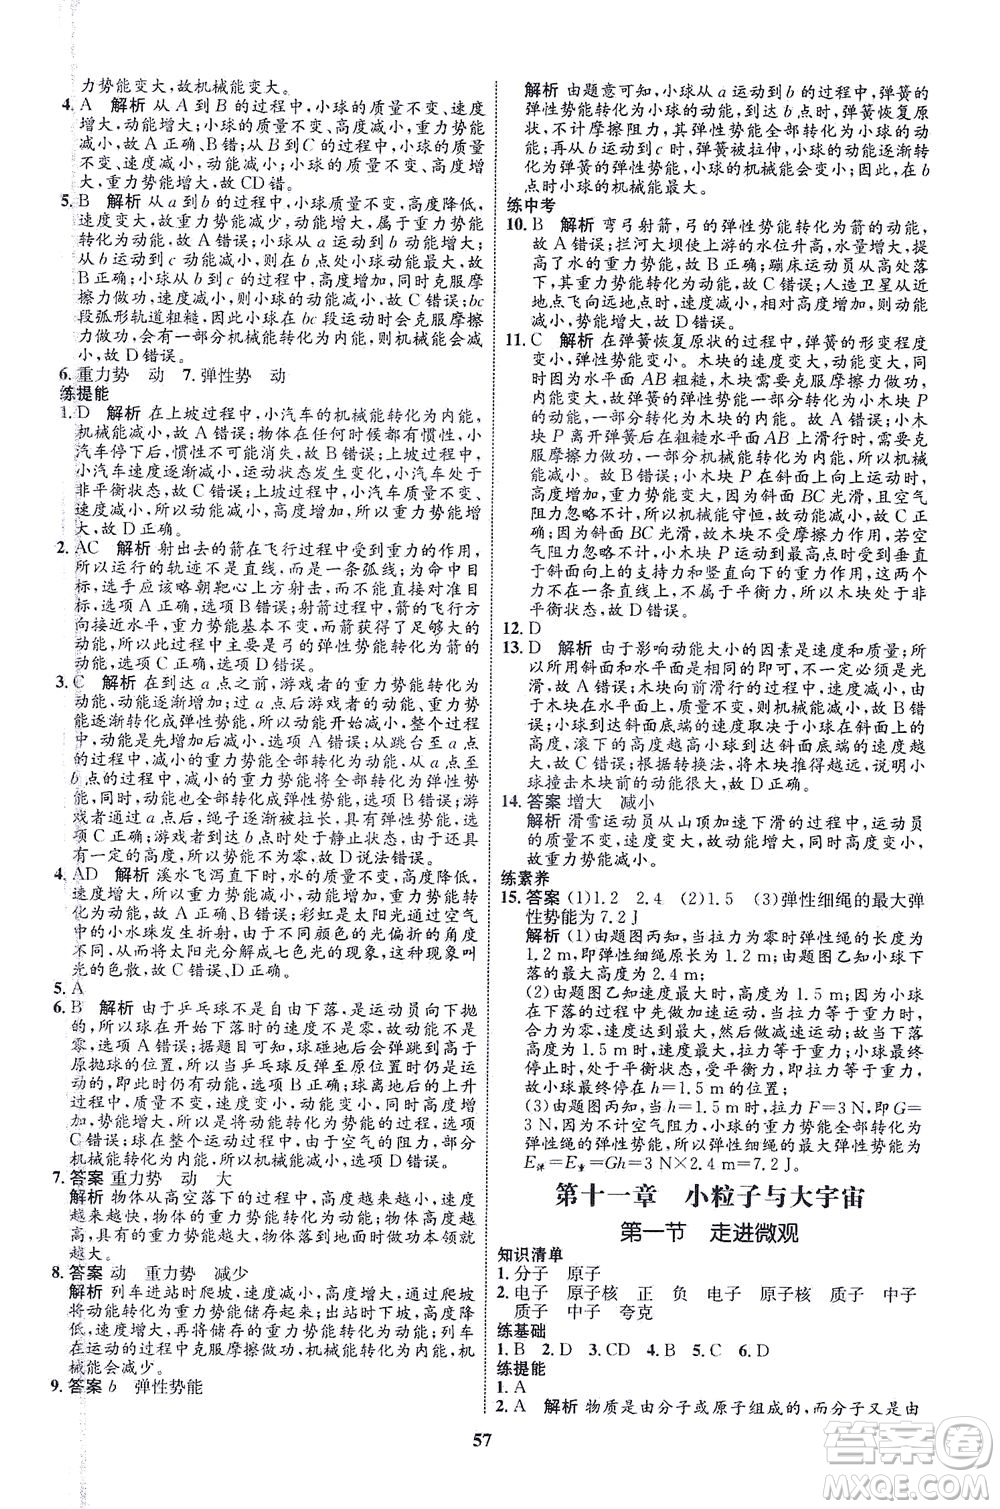 力势能变大,故机械能变大。
4. A 解析 从A到B的过程中,小球的质量不变、速度
增大,动能增大;小球的质量不变、高度减小,重力势能
减小,故A正确、B错误;从B到C的过程中,小球的质
量不变、速度减小,动能减小;小球的质量不变、高度增
大,重力势能增大,故CD错。
5. B 解析 从a到b的过程中,小球质量不变,高度降低,
速度变大,故重力势能减少,动能增大,属于重力势能
转化为动能,故A错误;小球从a运动到b动能增大;
从b运动到c动能减小,则在b点处小球动能最大,故
B正确;小球从b到c过程中,高度增加,同时克服摩
擦力做功,速度减小,则小球动能减小,故C错误;bc
段弧形轨道粗糙,因此小球在bc段运动时会克服摩
擦力做功,会有一部分机械能转化为内能,则机械能减
小,故D错误。
6. 重力势 动 7. 弹性势 动
练提能
1. D 解析 在上坡过程中,小汽车的机械能转化为内能,
机械能减小,故A错误;物体在任何时候都有惯性,小
汽车停下后,惯性不可能消失,故B错误;上坡过程中,
小汽车速度逐渐减小,运动状态发生变化,小汽车处于
非平衡状态,故C错误;上坡过程中,小汽车质量不变,
速度减小,所以动能减小,高度增加,所以重力势能增
大,故D正确。
2. AC 解析 射出去的箭在飞行过程中受重力的作用,
所以运行的轨迹不是直线,而是一条弧线;为命中目
标,选手应该略朝靶心上方射击,而不能正对着靶心射
去,选项A正确,选项B错误;射箭过程中,箭的飞行方
向接近水平,重力势能基本不变,而箭获得了足够大的
动能,所以此过程中主要是弓的弹性势能转化为箭的
动能,选项C正确、选项D错误。
3. C 解析 在到达a点之前,游戏者的重力势能转化为
动能,动能逐渐增加;过a点后游戏者的动能、重力势
能逐渐转化成弹性势能,所以动能开始减小,整个过程
中,动能先增加后减小,选项A错误;从跳台至a点的
过程中,是重力势能转化为动能,选项B错误;从a点至
b点的过程中是动能和重力势能将全部转化为弹性势
能,同时,动能也全部转化成弹性势能,所以选项C正
确;过a点后,绳子逐渐被拉长,弹性势能增大,所以D
错误;游戏者到达b点时处于静止状态,动能为零,但
有一定的高度,所以势能不为零,故D说法错误。
4. AD 解析 溪水飞泻直下时,水的质量不变,高度降低,
速度变大,所以重力势能变小,动能变大,不是重力势
能和动能的总和变大;彩虹是太阳光通过空气
中的小水珠发生折射,由于不同颜色的光偏折的角度
不同,从而将太阳光分解成七色光的现象,该现象称为
光的色散,故BC错误、AD正确。
5. A
6. B 解析 由于乒乓球不是自由下落,是运动员向下抛
的,所以球在开始下落时的速度不是零,即动能不是
零,选项A错误;根据题意知,球碰地后会弹跳到高于
原抛球的位置,所以当乒乓球反弹至原位置时仍在上
升,即此时仍有动能,选项B正确;球离地后的上升
过程中,质量不变,速度变小,动能变小,高度增大,重
力势能变大,所以是将动能转化为重力势能,选项C
错误;球在整个运动过程中,由于空气的阻力,部分
机械能转化为内能,机械能变小,选项D错误。
7. 答案 重力势 动 大
解析 物体从高空落下的过程中,高度越来越低,速度
越来越快,物体的重力势能转化为动能;物体的质量越
大、高度越高,具有的重力势能越大,转化成的动能就
越大。
8. 答案 动 重力势 减少
解析 列车进站时爬坡,速度减小,高度增大,通过爬坡
将动能转化为重力势能储存起来;出站时下坡,高度降
低、速度增大,将储存的重力势能转化为动能;列车
在运动的过程中克服摩擦力做功转化为内能,所以机
械能会减少。
9. 答案 b 弹性势能
解析 由题意可知,小球从a运动到b的过程中,弹簧的
弹性势能转化为小球的动能,到达b点时,弹簧恢复原
状,不计摩擦阻力,其弹性势能全部转化为小球的动
能;再从b运动到c时,弹簧被拉伸,小球的动能逐渐转
化为弹簧的弹性势能,小球的机械能会变小;因此,在b
点时小球的机械能最大。
练中考
10. B 解析 弯弓射箭,弓的弹性势能转化为箭的动能,
故A错误;拦河大坝使上游的水位升高,从而提高了
水的重力势能,故B正确;蹦床运动员从高处落
下,其重力势能转化为动能,故C错误;人造卫星从近
地点飞向远地点时,高度、势能增加,所以动能
减小,势能增大,故D错误。
11. C 解析 在弹簧恢复原状的过程中,弹簧的形变程度
变小,弹性势能变小,木块的速度变大、动能增大,同时
因为水平面AB粗糙,木块需要克服摩擦力做功,
内能变大,故该过程中,弹簧的弹性势能转化为木块
的动能和木块的内能,故A错误、B错误;小木
块P离开弹簧后在粗糙水平面上滑行时,小木块需要
克服摩擦力做功,机械能转化为内能,故木块P的机
械能变小,故C正确;木块P在斜面上向上运动过程中,
虽然没有克服摩擦力做功,斜面BC光滑,且空气
阻力不计,小木块的机械能守恒,故木块P的机械能
不变;斜面BC光滑,木块不受摩擦阻力作用,若空
气阻力不计,则小木块在斜面上运动时受到垂直于
斜面向上的支持力和竖直向下的重力作用,这两个
力不在一条直线上,不是平衡力,所以木块处于非
平衡状态,故D错误。
12. D
13. D 解析 由于影响动能大小的因素是速度和质量;所
以所用斜面和水平面是相同的即可,不一定是光
滑,故A错误;木块被撞后在水平面滑行的过程中,
由于木块向前运动,速度减小,质量不变,动能减小,故B
错误;小球到达斜面底端的速度取决于小球在斜面上的
高度,滚下的高度越高小球到达斜面底端的速度越大,
故C错误;根据转换法,将木块推得越远,说明小
球撞击木块前的动能越大,故D正确。
14. 答案 增大 减小
解析 滑雪运动员从山顶加速下滑的过程中,运动员
的质量不变,速度增大,故动能增大;质量不变,高度减
小,故重力势能减小。
练素养
15. 答案 (1)1.2 2.4 (2)1.5 (3)弹性细绳的最大弹
性势能为7.2J
解析 (1)由题图丙知,当拉力为零时弹性绳的长度为
1.2m,所以弹性细绳的原长为1.2m;由题图乙知小球下
落的最大高度为2.4m;
(2)由题图乙知速度最大时,高度为1.5m;因为小球
在下落的过程中先做加速运动,当重力与拉力相等时,
合力为零,速度达到最大,然后做减速运动;故当下落
高度为1.5m时,小球受力平衡,由于空气阻力的影响,
故小球最终停在h=1.5m的位置;
(3)由题图丙知,当h=1.5m时,拉力F=3N,故G=
3N,因不计空气阻力,小球的重力势能全部转化为
弹性绳的弹性势能,所以弹性细绳的最大弹性势能为
E弹=E重=Gh=3N×2.4m=7.2J。
第十一章 小粒子与大宇宙
第一节 走进微观
知识清单
1. 分子 原子
2. 电子 原子核 正 负 电子 原子核 质子 中子
质子 中子 夸克
练基础
1. B 2. D 3. CD 4. C 5. C 6. D
练提能
1. A
2. A 解析 物质是由分子或原子组成的,而分子又是由
57
答案圈
MXQE.COM